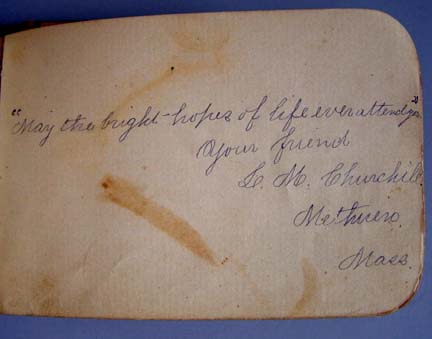 "May the bright hopes of life ever attend you"
Your friend
L. M. Churchill.
Methuen.
Mass.